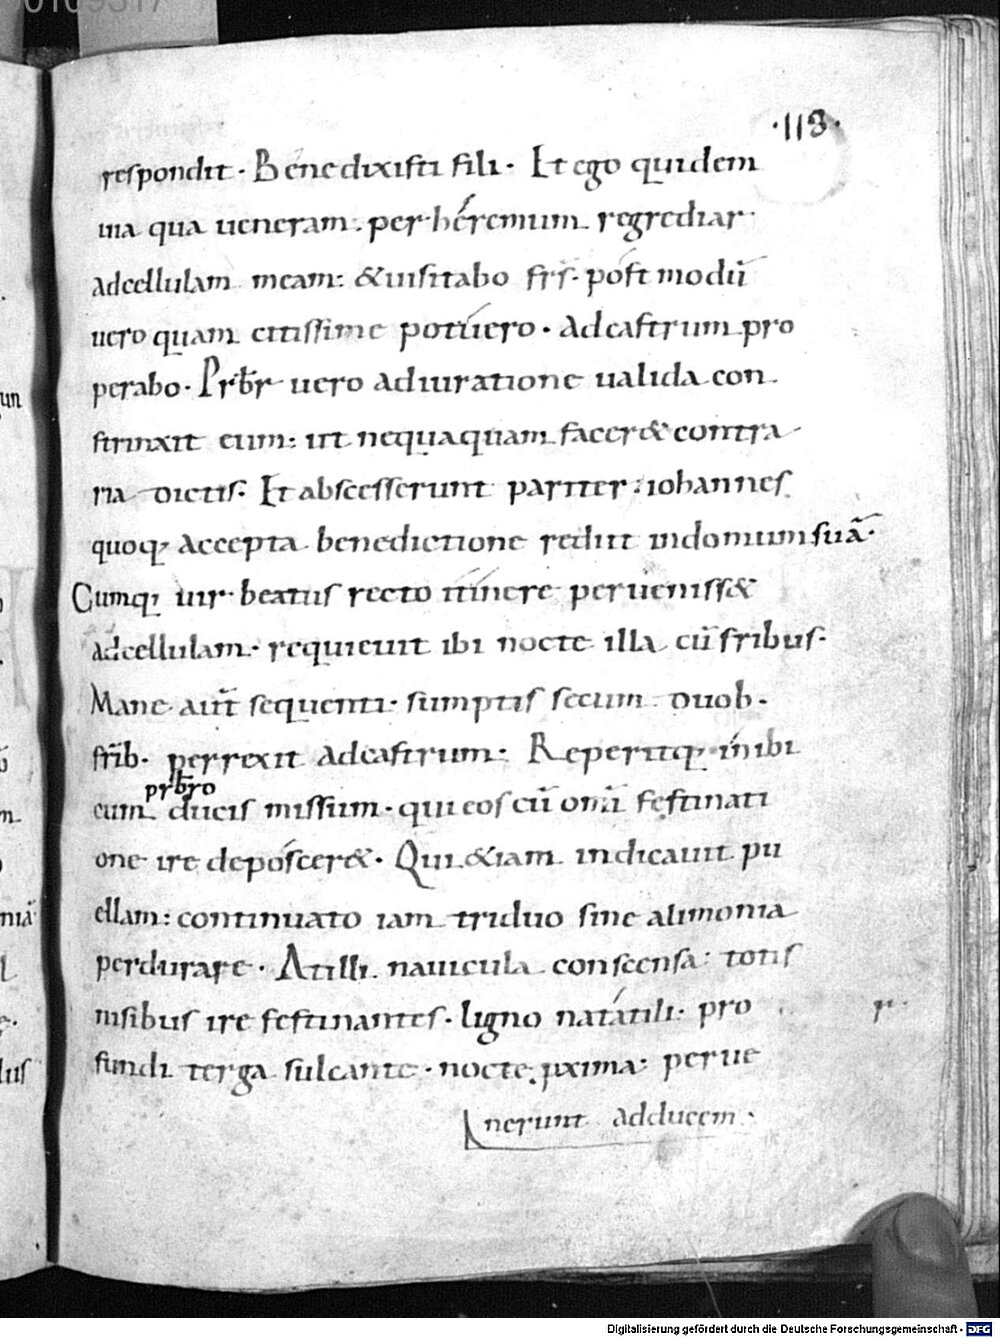 ·113·
respondit · Benedixisti fili · Et ego quidem
uia qua ueneram · per heremum regrediar ·
adcellulam meam: &uisitabo frs̄ · post modū
uero quam citissime potuero · adcastrum pro
perabo · Prb̄r uero adiuratione ualida con
strinxit eum: ut nequaquam facer& contra
ria dictis · Et abscesserunt pariter · iohannes
quoq; accepta benedictione rediit indomum suā ·
Cumq; uir beatus recto itinere perueniss&
adcellulam · requieuit ibi nocte illa cū fribus ·
Mane aut̄ sequenti · sumptis secum duob ·
frib̄ · perrexit adcastrum · Reperitq; inibi
prb̄ro
eum ducis missum · qui eos cū om̄i festinati
one ire deposcer& · Qui &iam indicauit pu
ellam: continuato iam triduo sine alimonia
perdurare · At illi nauicula conscensa: totis
nisibus ire festinantes · ligno natatili · pro
r ·
fundi terga sulcante · nocte pxima · perue
nerunt adducem ·
Digitalisierung gefördert durch die Deutsche Forschungsgemeinschaft - DFG